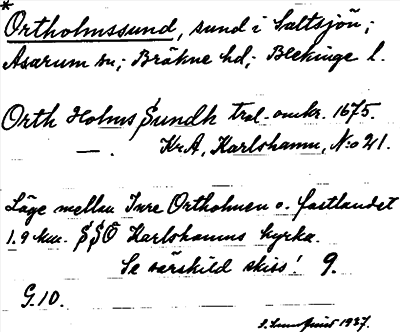 *
Ortholmssund, sund i Saltsjön;
Asarum sn; Bräkne hd; Blekinge l.
Orth Holms Sundh trol. omkr. 1675.
— . Kr.A, Karlshamn, N:o 21.
Läge mellan Inre Ortholmen o. fastlandet
1.9 km. SSÖ Karlshamns kyrka.
Se särskild skiss! 9.
G.10.
1937.